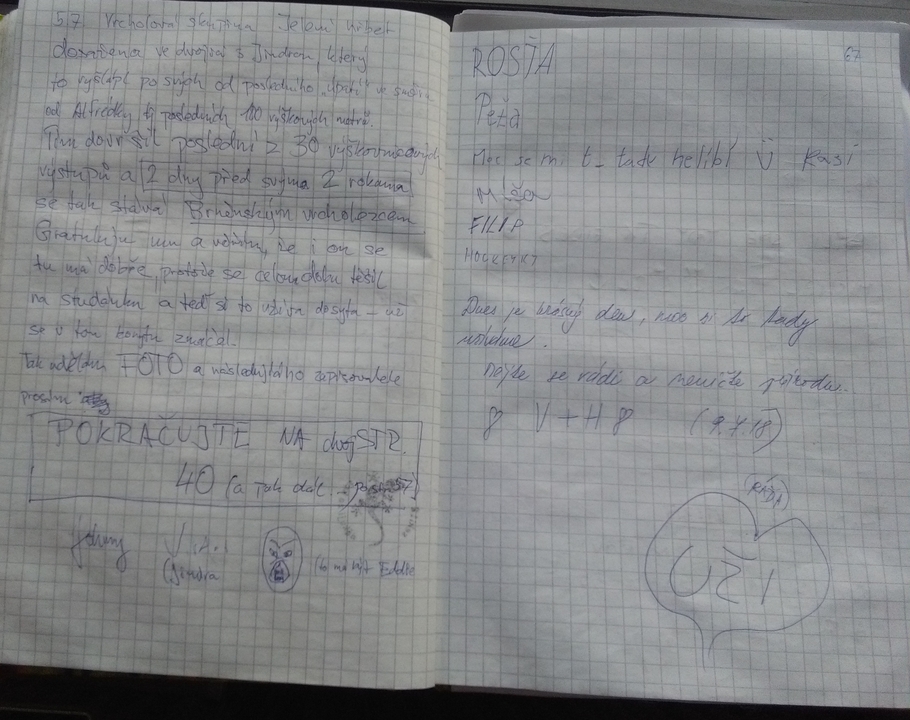 5.7. Vrcholová skupina Jelení hřbet
dosažena ve dvojici s Jindrou, který
to vyšlápl po svých od posledního
od Alfrédky, tj posledních 100 výškových metrů.
Tím dovršil poslední z 30
výstupů a 2 dny před svýma 2 rokama
se tak stává Brněnským vrcholozcem
Gratuluju mu a věřím, že i on se
tu má dobře, protože se celou dobu těšil
na studánku a teď si to užívá dosyta – už
se v tom znáchal.
Tak uděláme FOTO a následujícího zapisovatele
prosím
POKRAČUJTE NA dvojSTR.
40 (a tak dál
(Jindra
(to má být Eddie
67
ROSŤA
Peťa
Moc se mi t_ tady nelíbí Ü Kasi
Míša
FILIP
Dnes je krásný den, moc si to tady
užíváme.
Mějte se rádi a neničte přírodu.
V + H (9.7.18)
(RAĎA)